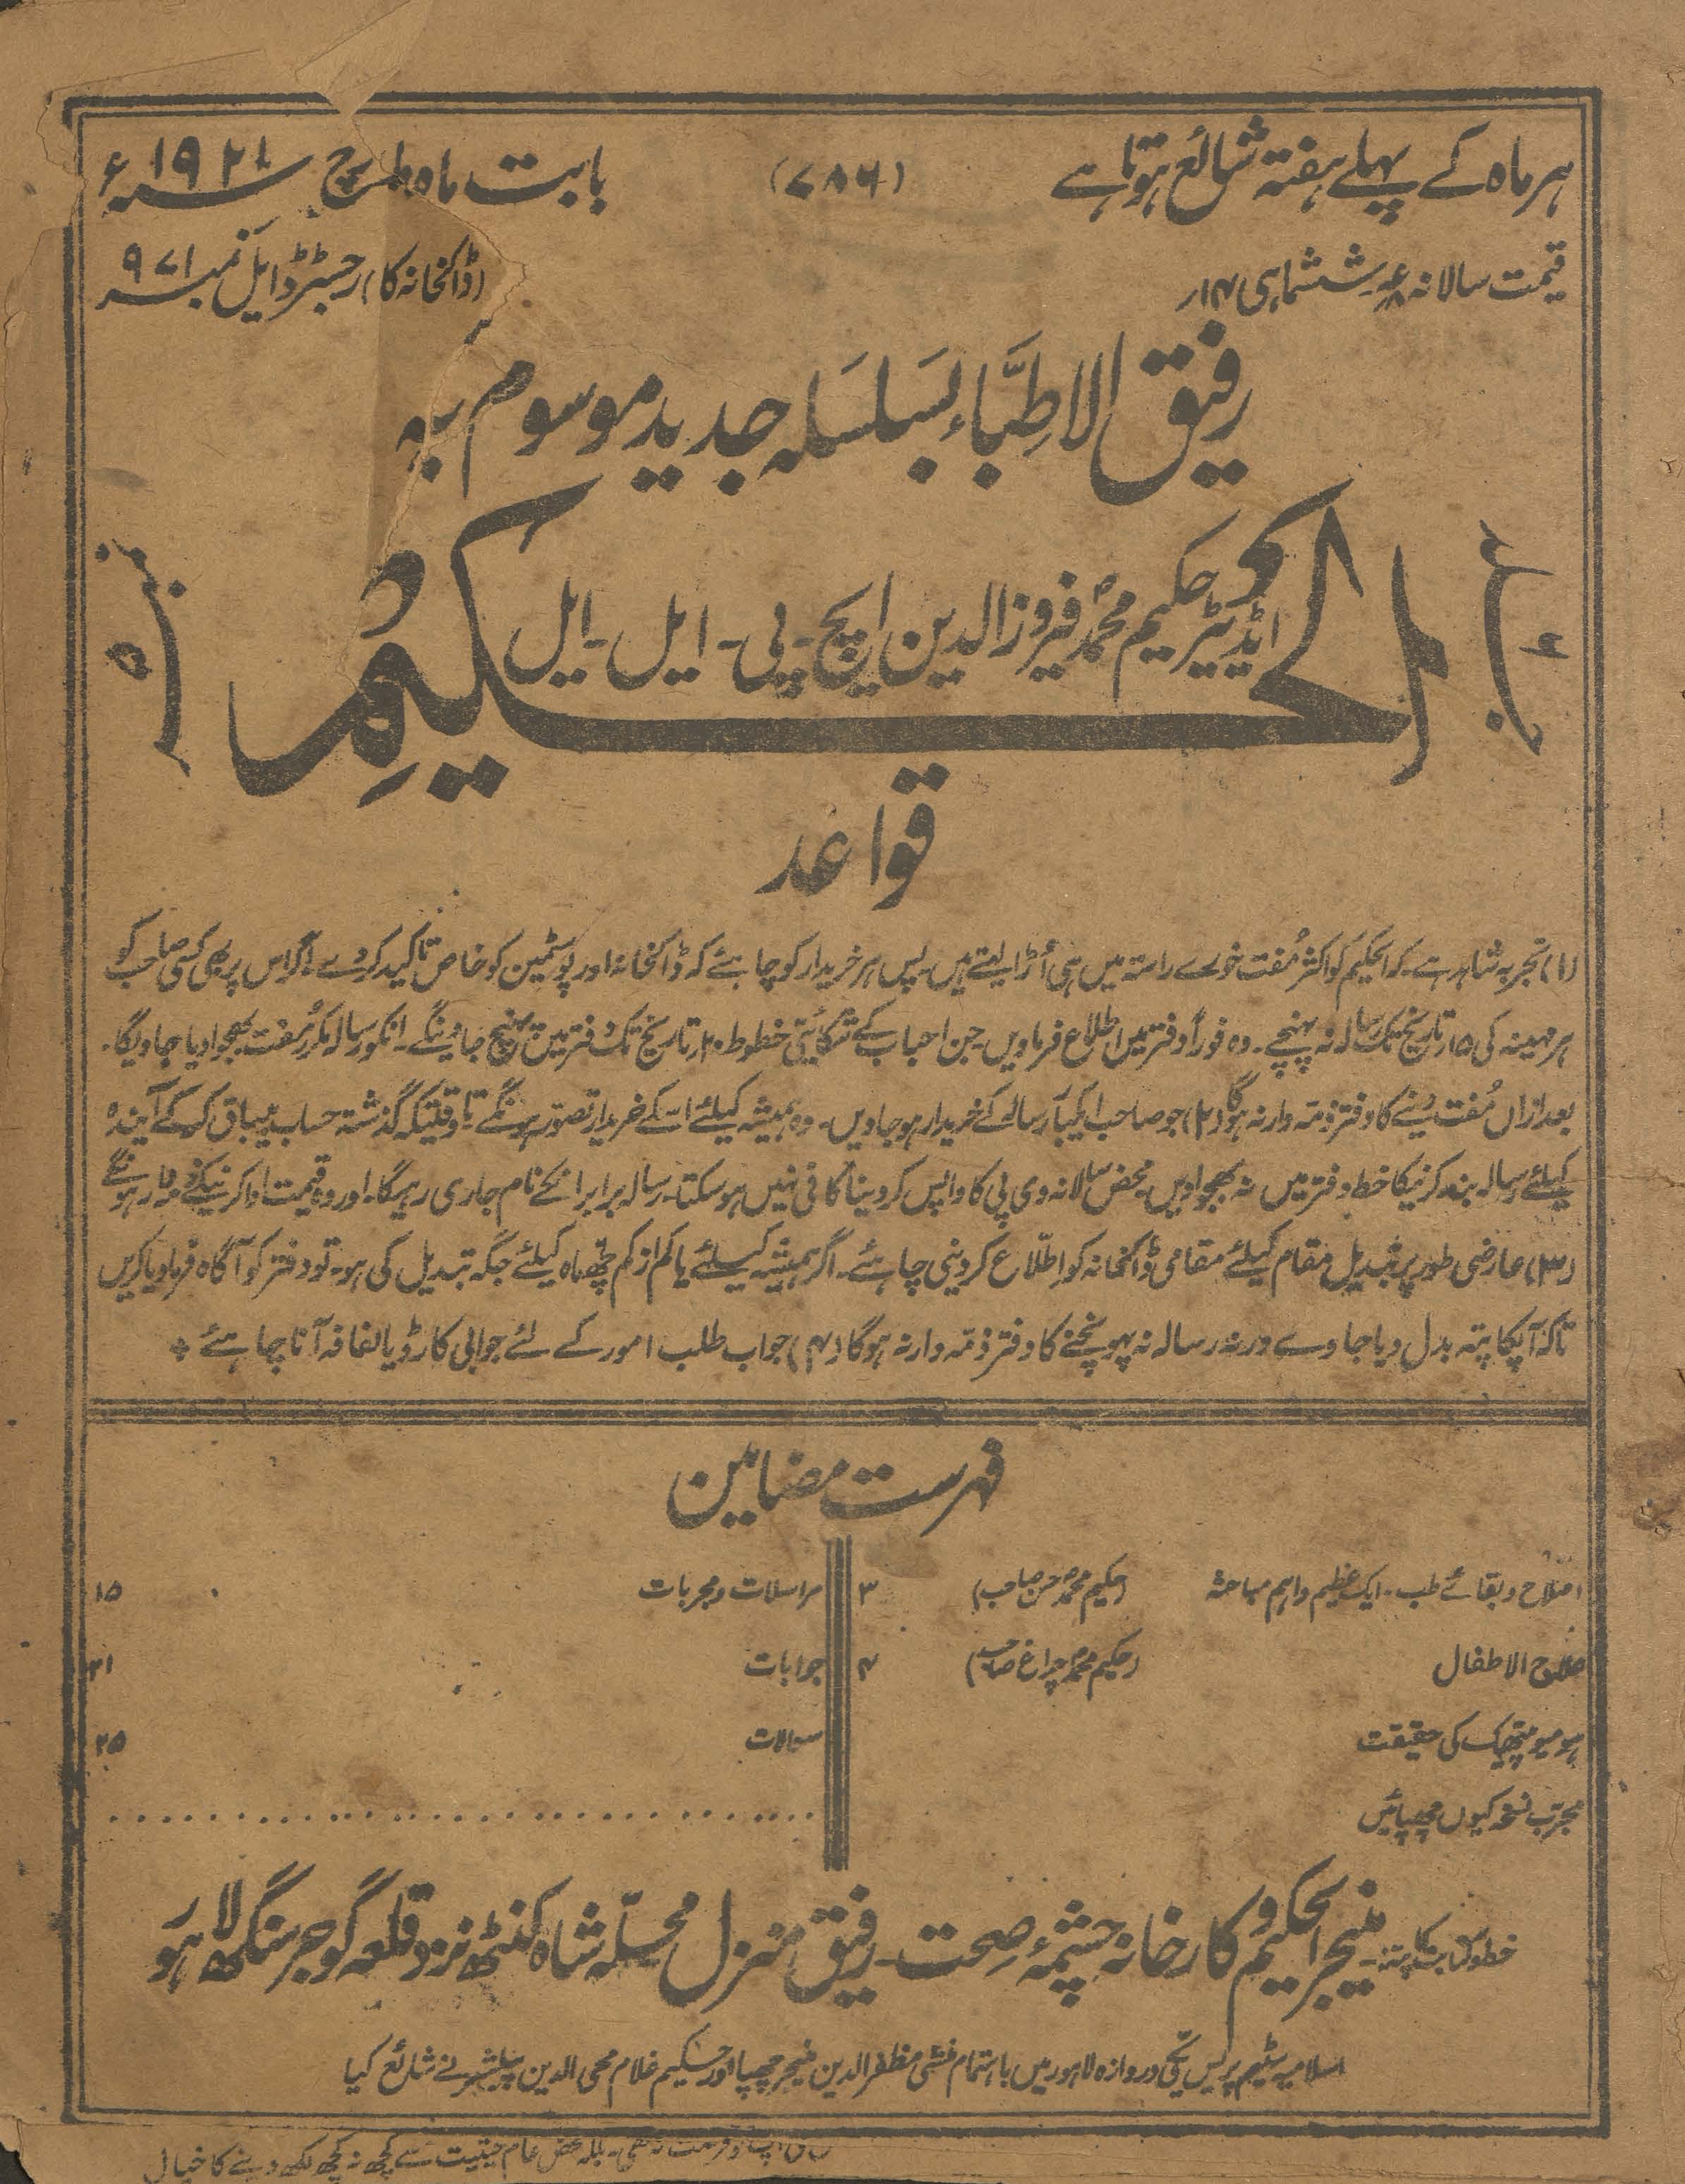 ہر ماہ کے پہلے ہفتہ شائع ہوتا ہے (۷۸۶) بابت ماہ مارچ ۱۹۲۱ سنہء
قیمت سالانہ ششماہی ۱۴ر (ڈاکخانہ کا) رجسٹرڈ ایل نمبر ۹۷۱
رفیق الاطبّاء بسلسلہ جدید موسوم بہ
الحکیم
ایڈیٹر حکیم محمد فیروز الدین ایچ - پی - ایل - ایل
نمبر
قواعد
(۱) تجربہ شاہد ہے۔ کہ الحکیم کو اکثر مُفت خورے راستہ میں ہی اُڑا لیتے ہیں۔ پس ہر خریدار کو چاہئے کہ ڈاکخانہ اور پوسٹمین کو خاص تاکید کر دے۔ اگر اس پر بھی کسی صاحب کو
ہر مہینہ کی ۱۵ تاریخ تک رسالہ نہ پہنچے۔ وہ فوراً دفتر میں اطلاع فرماویں۔ جن احباب کے شکایتی خطوط ۲۰ تاریخ تک دفتر میں پہنچ جاوینگے۔ انکو رسالہ مکرر مُفت بھجوا دیا جاویگا۔
بعد ازاں مُفت دینے کا دفتر ذمّہ وار نہ ہوگا (۲) جو صاحب ایکبار رسالہ کے خریدار ہو جاویں۔ وہ ہمیشہ کیلئے اسکے خریدار تصور ہونگے تاوقتیکہ گذشتہ حساب بیباق کرکے آیندہ
کیلئے رسالہ بند کرنیکا خط دفتر میں نہ بھجوادیں۔ محض سالانہ وی پی کا واپس کر دینا کافی نہیں ہو سکتا۔ رسالہ برابر انکے نام جاری رہیگا۔ اور وہ قیمت ادا کرنیکے ذمہ وار ہونگے
(۳) عارضی طور پر تبدیل مقام کیلئے مقامی ڈاکخانہ کو اطلّاع کر دینی چاہئے۔ اگر ہمیشہ کیلئے یا کم از کم چھ ماہ کیلئے جگہ تبدیل کی ہو۔ تو دفتر کو آگاہ فرما دیا کریں
تاکہ آپکا پتہ بدل دیا جاوے ورنہ رسالہ نہ پہونچنے کا دفتر ذمّہ وار نہ ہوگا (۴) جواب طلب امور کے لئے جوابی کارڈ یا لفافہ آنا چاہئے
فہرست مضامین
اصلاح و بقائے طب۔ ایک عظیم و اہم مباحثہ (حکیم محمد حسن صاحب) ۳
علاج الاطفال (حکیم محمد چراغ صاحب) ۴
ہومیوپیتھک کی حقیقت
مجرّب نسخہ کیوں چھپائیں
مراسلات و مجربات ۱۵
جوابات ۲۱
سوالات ۲۵
خط و کتابت کا پتہ :- منیجر الحکیم و کارخانہ چشمۂ صحت - رفیق منزل محلّہ شاہ کنٹھ نزد قلعہ گوجر سنگھ لاہور
اسلامیہ سٹیم پریس یکی دروازہ لاہور میں باہتمام منشی مظفر الدین منیجر چھپا اور حکیم غلام محی الدین پبلشر نے شائع کیا
بلکہ محض عام حیثیت سے کچھ نہ کچھ لکھ دینے کا خیال